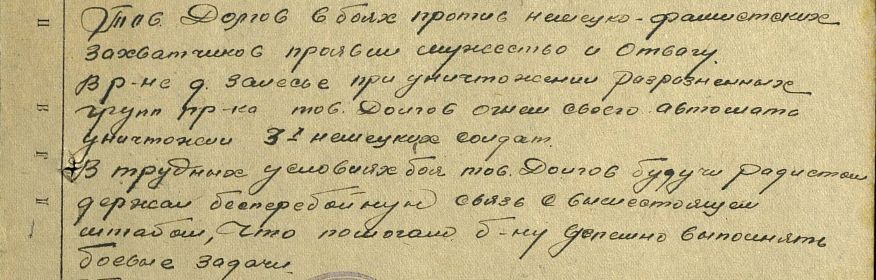 Тов. Долгов в боях против немецко-фашистских
захватчиков проявил мужество и отвагу.
В р-не д. Залесье при уничтожении разрозненных
групп пр-ка тов. Долгов огнем своего автомата
уничтожил 3х немецких солдат.
В трудных условиях боя тов. Долгов будучи радистом
держал бесперебойную связь с вышестоящем
штабом, что помогало б-ну успешно выполнять
боевые задачи.